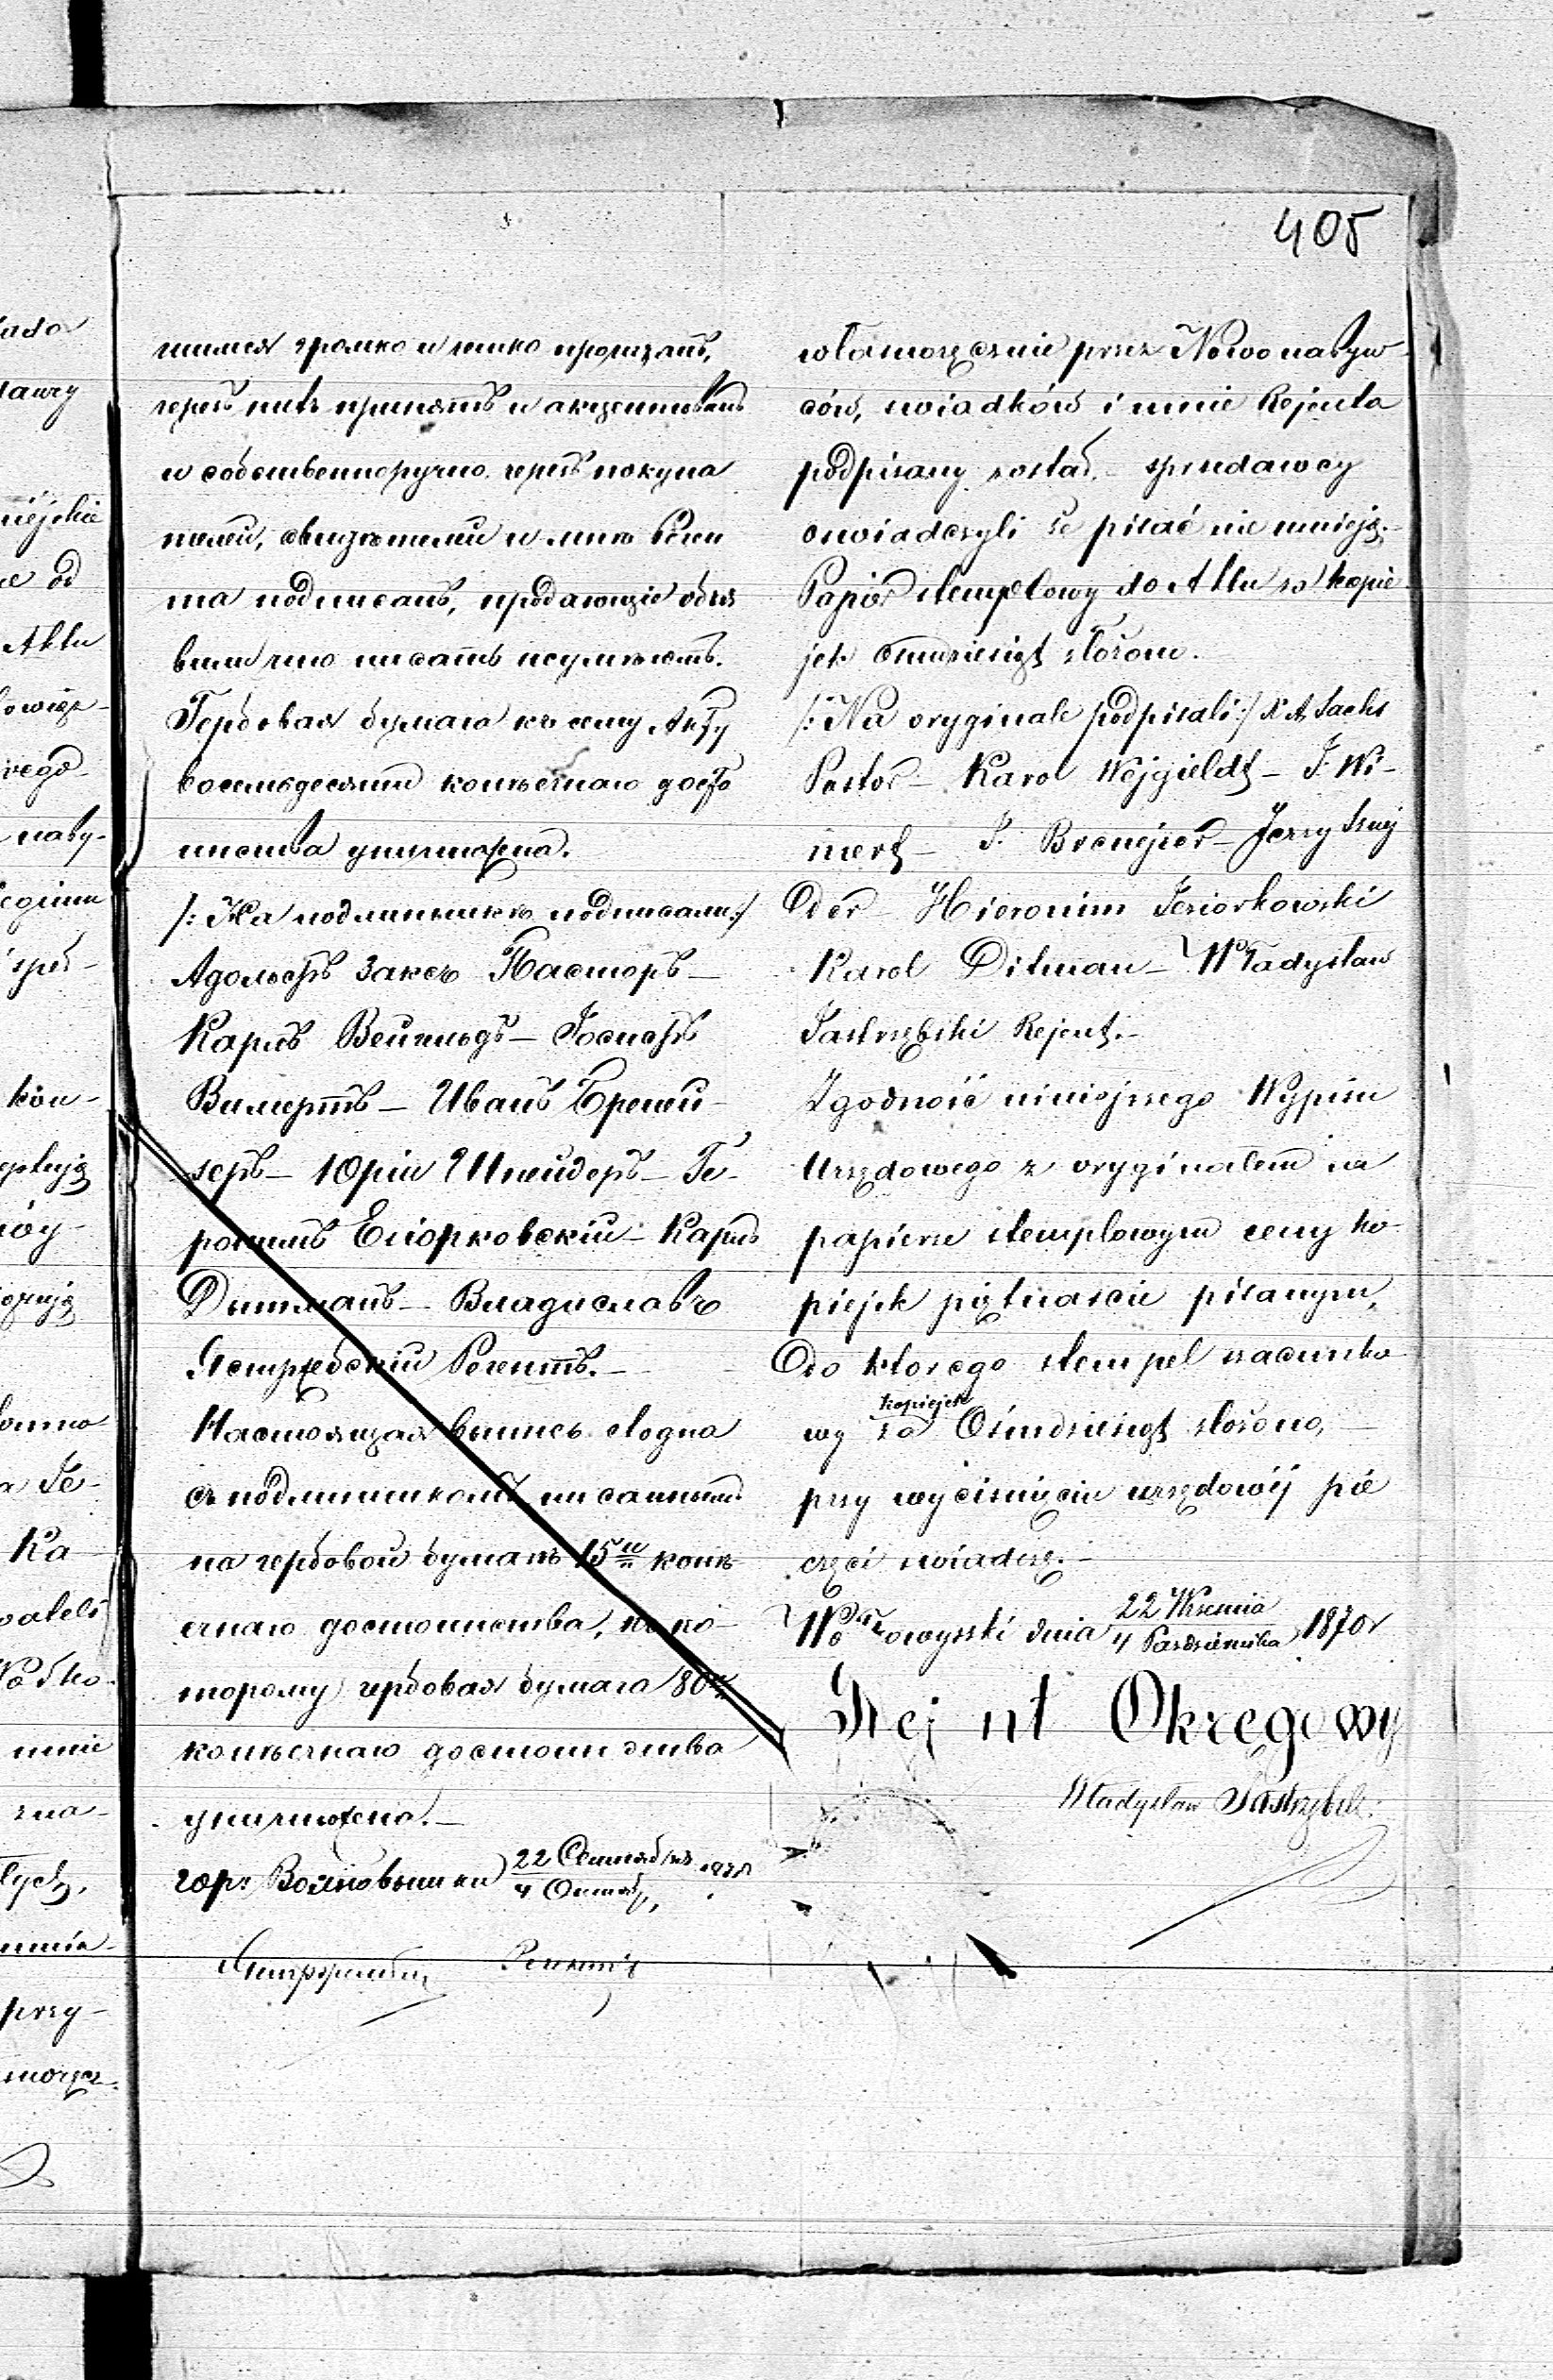 405
шимся громко и ясно прочитанъ,
черезъ нихъ принятъ и акцептованъ
и собственноручно черезъ покупа
телей, свидѣтелей и мною Реген
та подписанъ, продающіе объя
вили что писать неумѣютъ.
Гербовая бумага къ сему Акту
восемьдесяти копѣечнаго досто
инства уничтожена.
/: На подлинникѣ подписали :/
Адольфъ Заксъ Пасторъ —
Карлъ Вейгельдъ — Іосифъ
Вимертъ — Иванъ Бреней-
зеръ — Юрій Шнейдеръ — Ге-
ронимъ Езіорковскій — Карлъ
Дитманъ — Владиславъ
Ястржебскій Регентъ. —
Настоящая выпись сходна
съ подлинникомъ писаннымъ
на гербовой бумагѣ 15ти копѣ
ечнаго достоинства, къ ко-
торому гербовая бумага 80ти
копѣечнаго достоинства
уничтожена. —
гор: Волковышки 22 Сентября
4 Октяб,
Регентъ
własnoręcznie przez Nowonabyw
ców, swiadków i mnie Rejenta
podpisany został. sprzedawcy
oswiadczyli że pisać nie umieją. —
Papier stemplowy do Aktu za kopie
jek ośmdziesiąt złożono.
/: Na oryginale podpisali :/ X A Sachs
Pastor — Karol Wejgieldt — J. Wi-
mert — J. Brenejzer — Jerzy Sznej
der — Hieronim Jeziorkowski
Karol Ditman — Władysław
Jastrzębski Rejent. —
Zgodność niniejszego Wypisu
Urzędowego z oryginałem na
papierze stemplowym ceny ko-
piejek piętnaście pisanym,
Do którego stempel szacunko
wy za kopiejek Ośmdziesiąt złożono, —
przy wyciśnięciu urzędowéj pie
częci swiadczę. —
Wołkowyszki dnia 22 Września / 4 Października 1870 r
Rejent Okręgowy
Władysław Jastrzębski